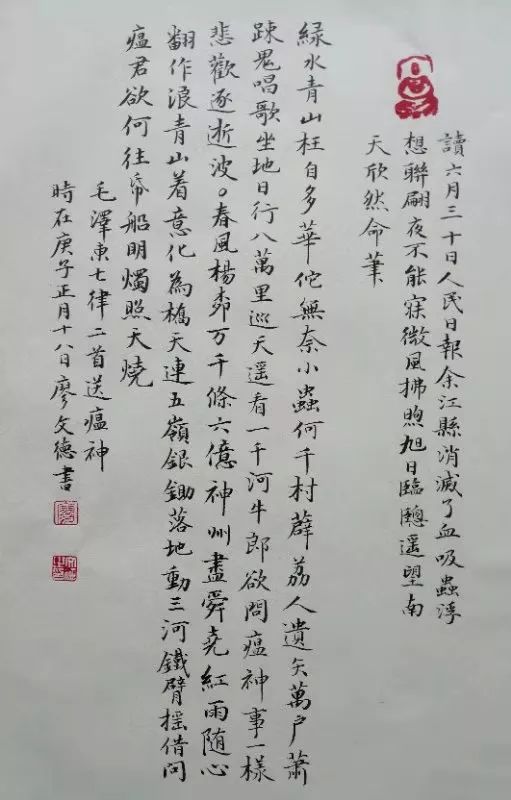 讀六月三十日人民日報余江縣消滅了血吸蟲浮
想聯翩夜不能寐微風拂煦旭日臨牕遥望南
天欣然命筆
緑水青山枉自多華佗無奈小蟲何千村薜荔人遺矢萬户蕭
疎鬼唱歌坐地日行八萬里巡天遥看一千河牛郎欲問瘟神事一樣
悲歡逐逝波。春風楊桞万千條六億神州盡舜堯紅雨随心
翻作浪青山着意化為橋天連五嶺銀鋤落地動三河鐵臂摇借問
瘟君欲何往帋船明燭照天燒
毛澤東七律二首送瘟神
時在庚子正月十八日廖文德書